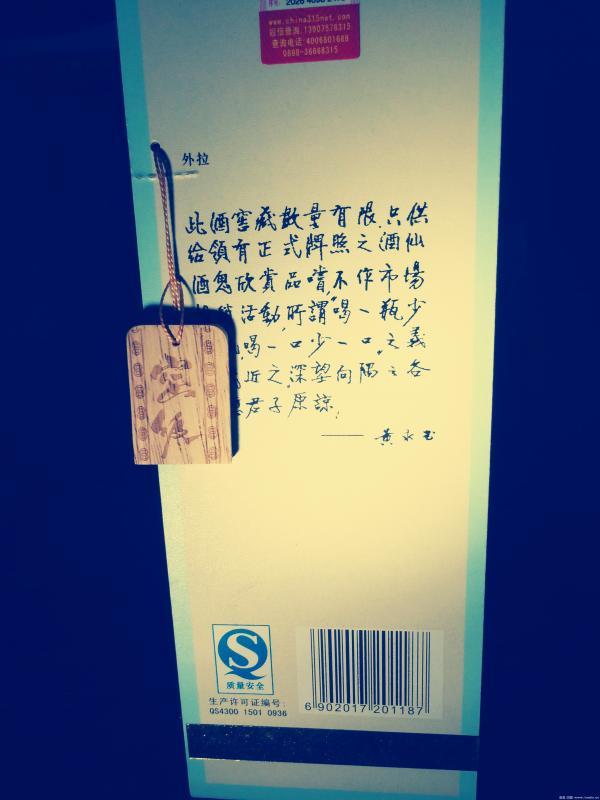 www.china315net.com
短信查询:13907578315
查询电话:4006801689
0898-36668315
外拉
此酒窖藏數量有限,只供
给领有正式牌照之酒仙
酒鬼欣賞品嚐,不作市場
活動,所謂"喝一瓶少
喝一口少一口"之義
近之,深望向隅之各
君子原諒;
黄永玉
定作
质量安全
生产许可证编号:
QS4300 1501 0936
6 902017 201187